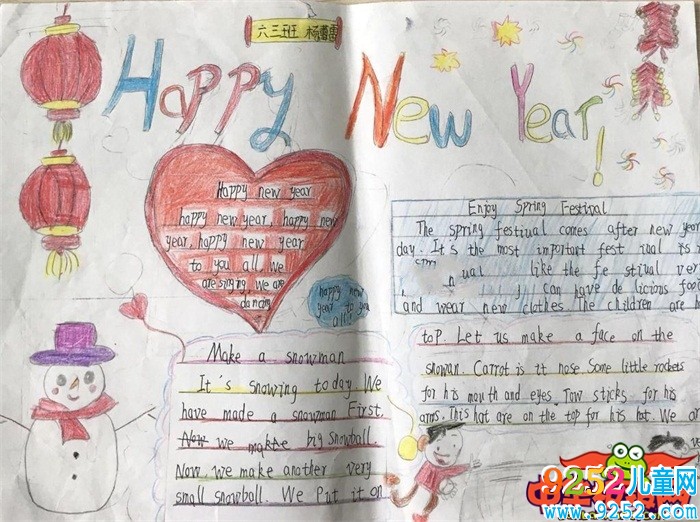 六三班 杨
Happy New Year!
Happy new year
happy new year, happy new
year, happy new year
to you all. We
are singing, We are
dancing
happy new
year to you
all!
Enjoy Spring Festival
The spring festival comes after new year
day. It's the most important fest ival is
ual like the fe stival ver
can have de licious foo
and wear new clothes. The children are
Make a snowman
It's snowing today. We
have made a snowman First,
Now we make big snowball.
Now we make another very
small snowball. We Put it on
top. Let us make a face on the
snowan. Carrot is it nose. Some little rockets
for his mouth and eyes. Tow sticks for his
arms. This hat are on the top for his hat. We
9252儿童网
www.9252.com